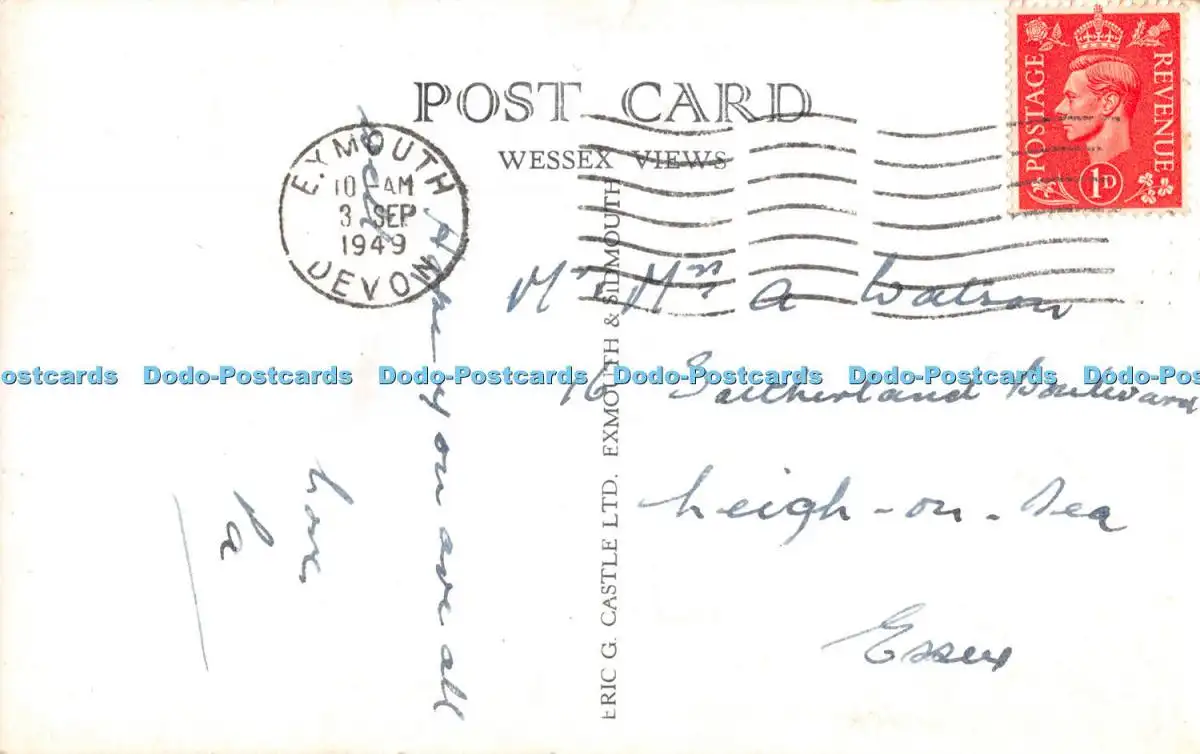 POST CARD
WESSEX VIEWS
POSTAGE REVENUE
1D
E.YMOUTH
10-AM
3 SEP
1949
DEVON
Hope you are all
well
love
Pa
ERIC G. CASTLE LTD. EXMOUTH & SIDMOUTH
Mr Mrs A Watson
16 Sutherland Boulevard
Leigh-on-Sea
Essex
ostcards Dodo-Postcards Dodo-Postcards Dodo-Postcards Dodo-Postcards Dodo-Pos